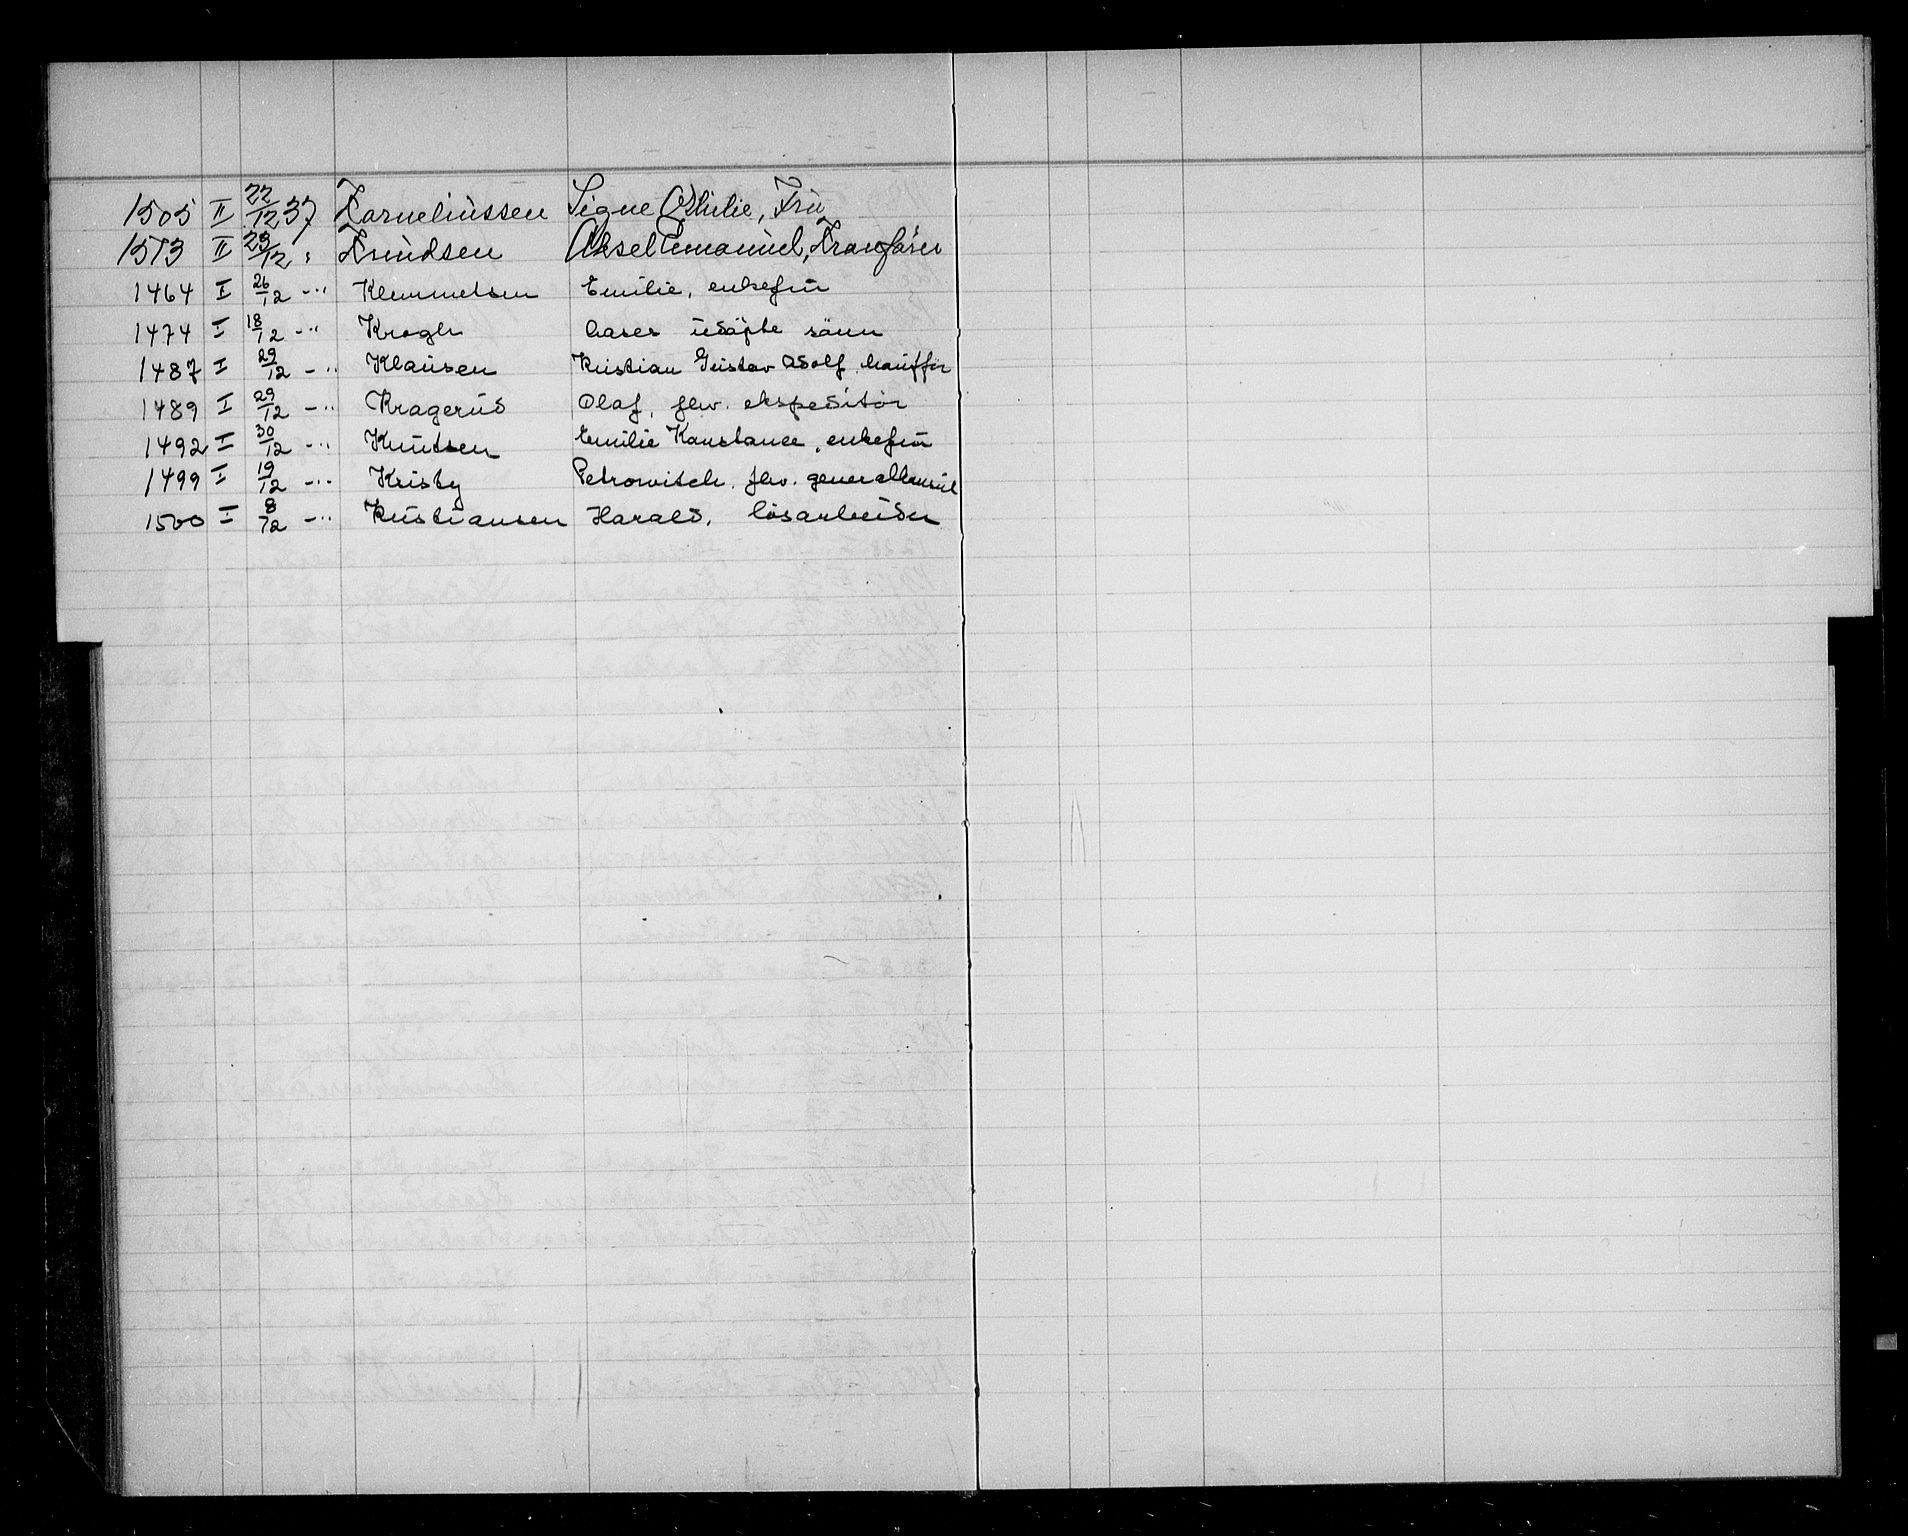 1505 II 22/12 37 Korneliussen Signe Othilie, Fru
1513 II 23/12 " Knudsen Aksel Emanuel, Kranfører
1464 I 26/12 -"- Klemmetsen Emilie, enkefru
1474 I 18/12 -"- Krogh Aases udöpte sönn
1487 I 29/12 -"- Klausen Kristian Gustav Adolf, chauffør
1489 I 29/12 -"- Kragerud Olaf, fhv. ekspeditör
1492 I 30/12 -"- Knutsen Emilie Konstance, enkefru
1499 I 19/12 -"- Kristy Petrowitch, fhv. generalkonsul
1500 I 8/12 -"- Kristiansen Harald, lösarbeider